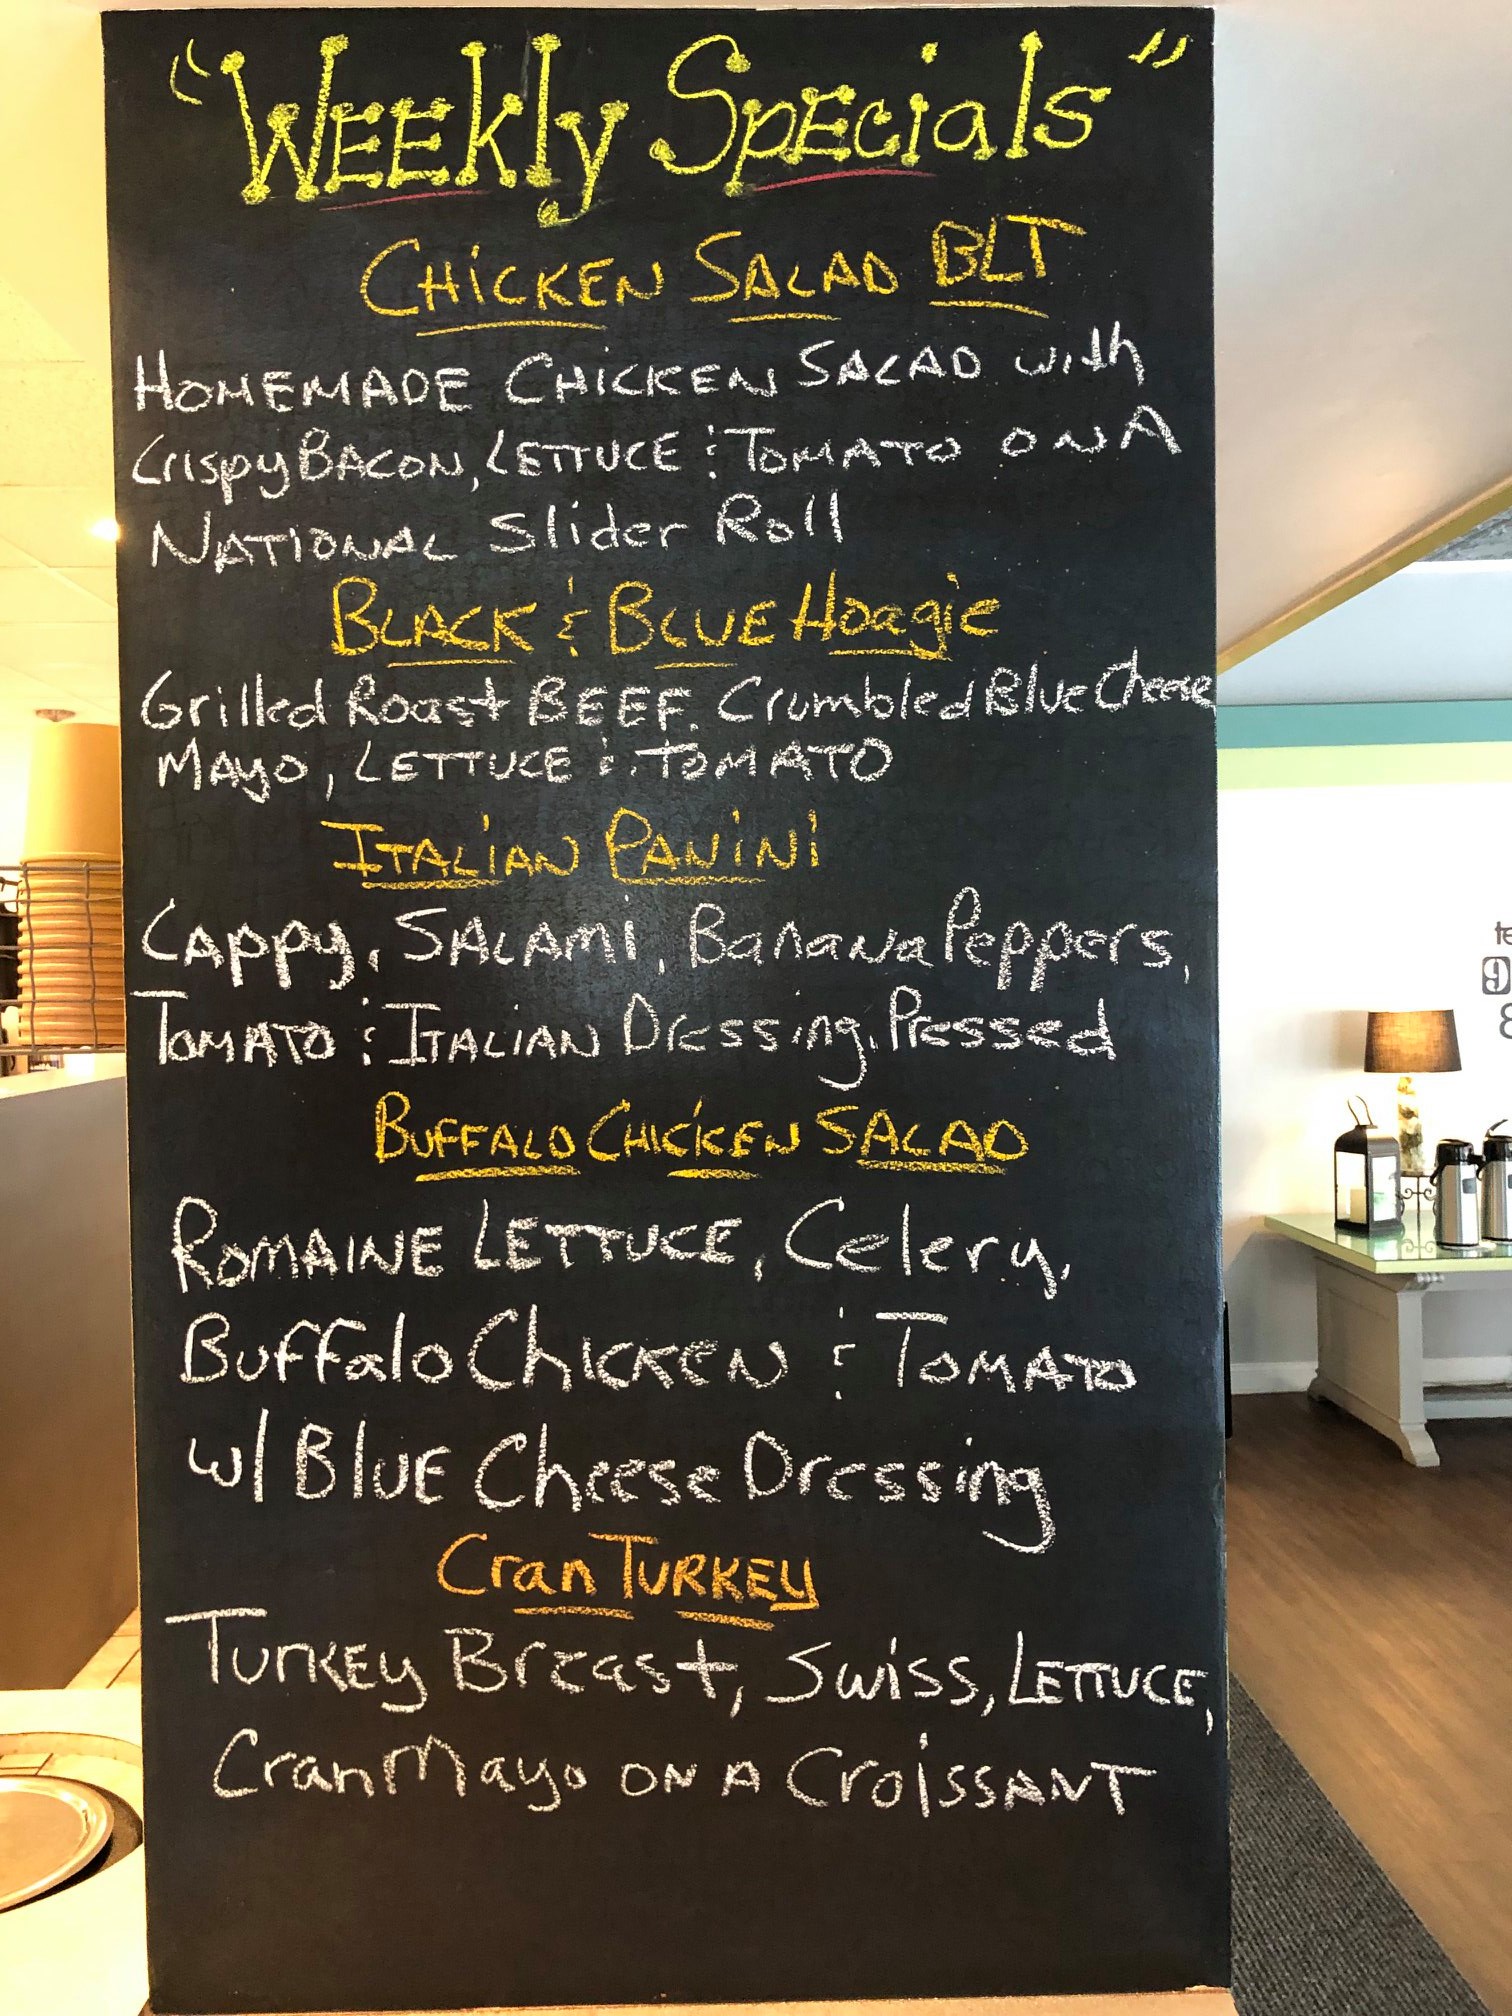 "Weekly Specials"
Chicken Salad BLT
Homemade Chicken Salad with
Crispy Bacon, Lettuce & Tomato on A
National Slider Roll
Black & Blue Hoagie
Grilled Roast Beef. Crumbled Blue Cheese
Mayo, Lettuce & Tomato
Italian Panini
Cappy, Salami, Banana Peppers,
Tomato & Italian Dressing, Pressed
Buffalo Chicken Salad
Romaine Lettuce, Celery,
Buffalo Chicken & Tomato
w/ Blue Cheese Dressing
Cran Turkey
Turkey Breast, Swiss, Lettuce,
Cran Mayo on A Croissant